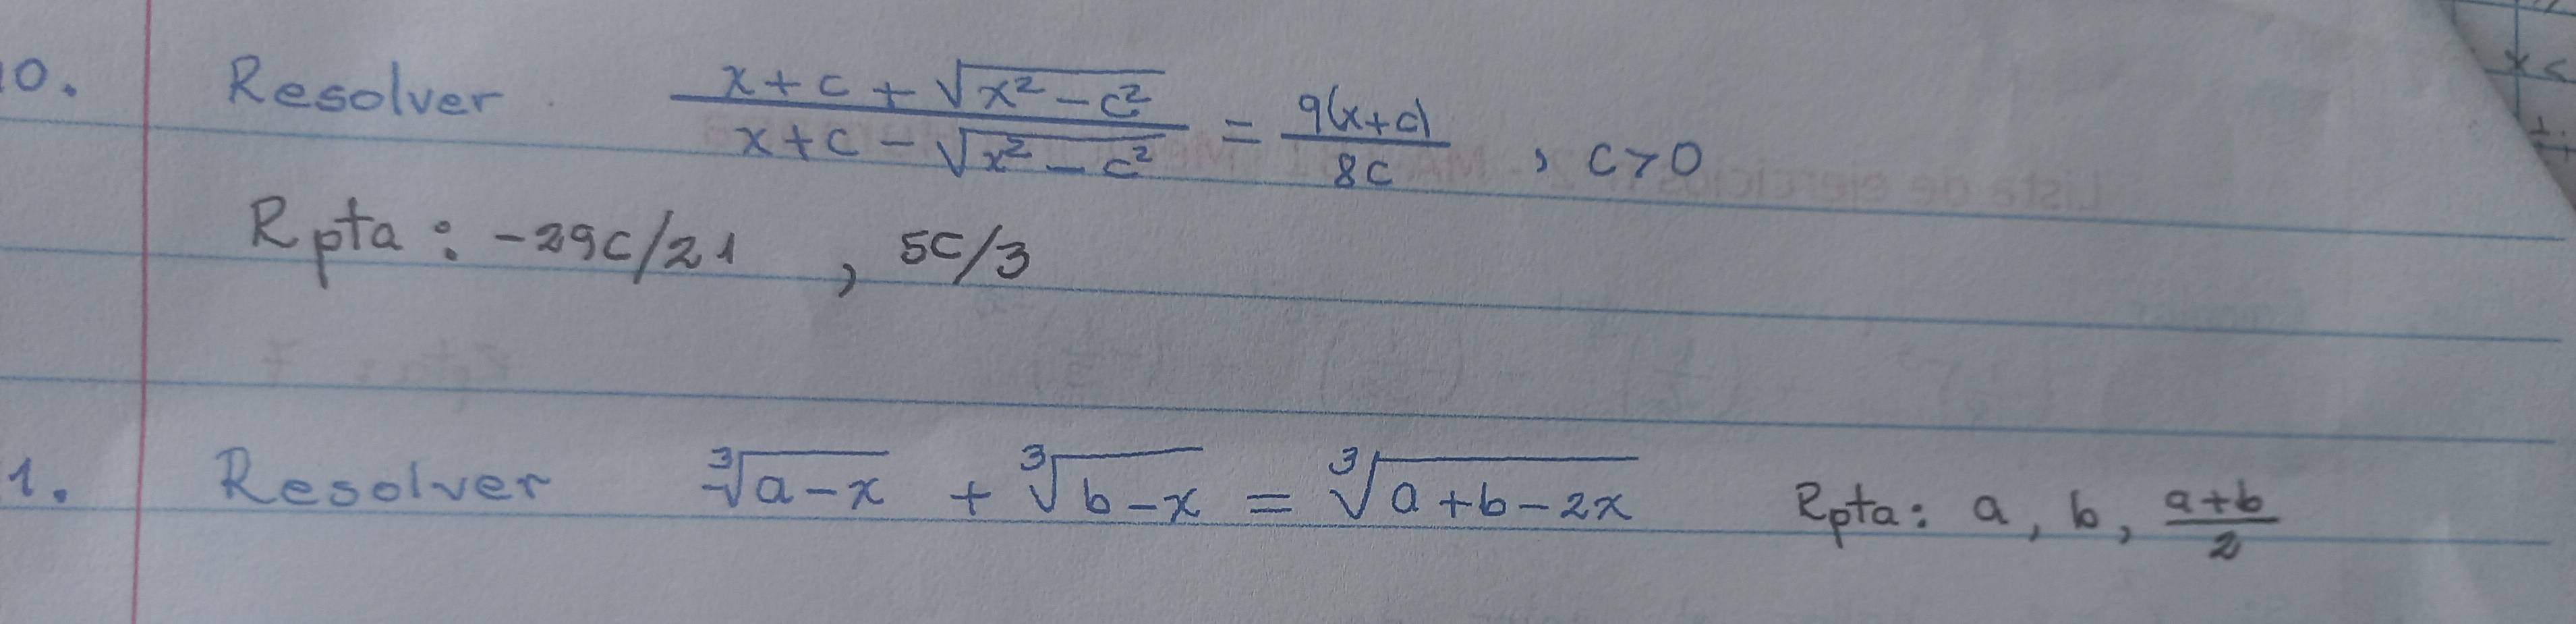 10. Resolver (x + c + √(x² - c²)) / (x + c - √(x² - c²)) = 9(x+c) / 8c , c>0
Rpta : -29c/21 , 5c/3
1. Resolver ∛(a-x) + ∛(b-x) = ∛(a+b-2x) Rpta: a, b, (a+b)/2